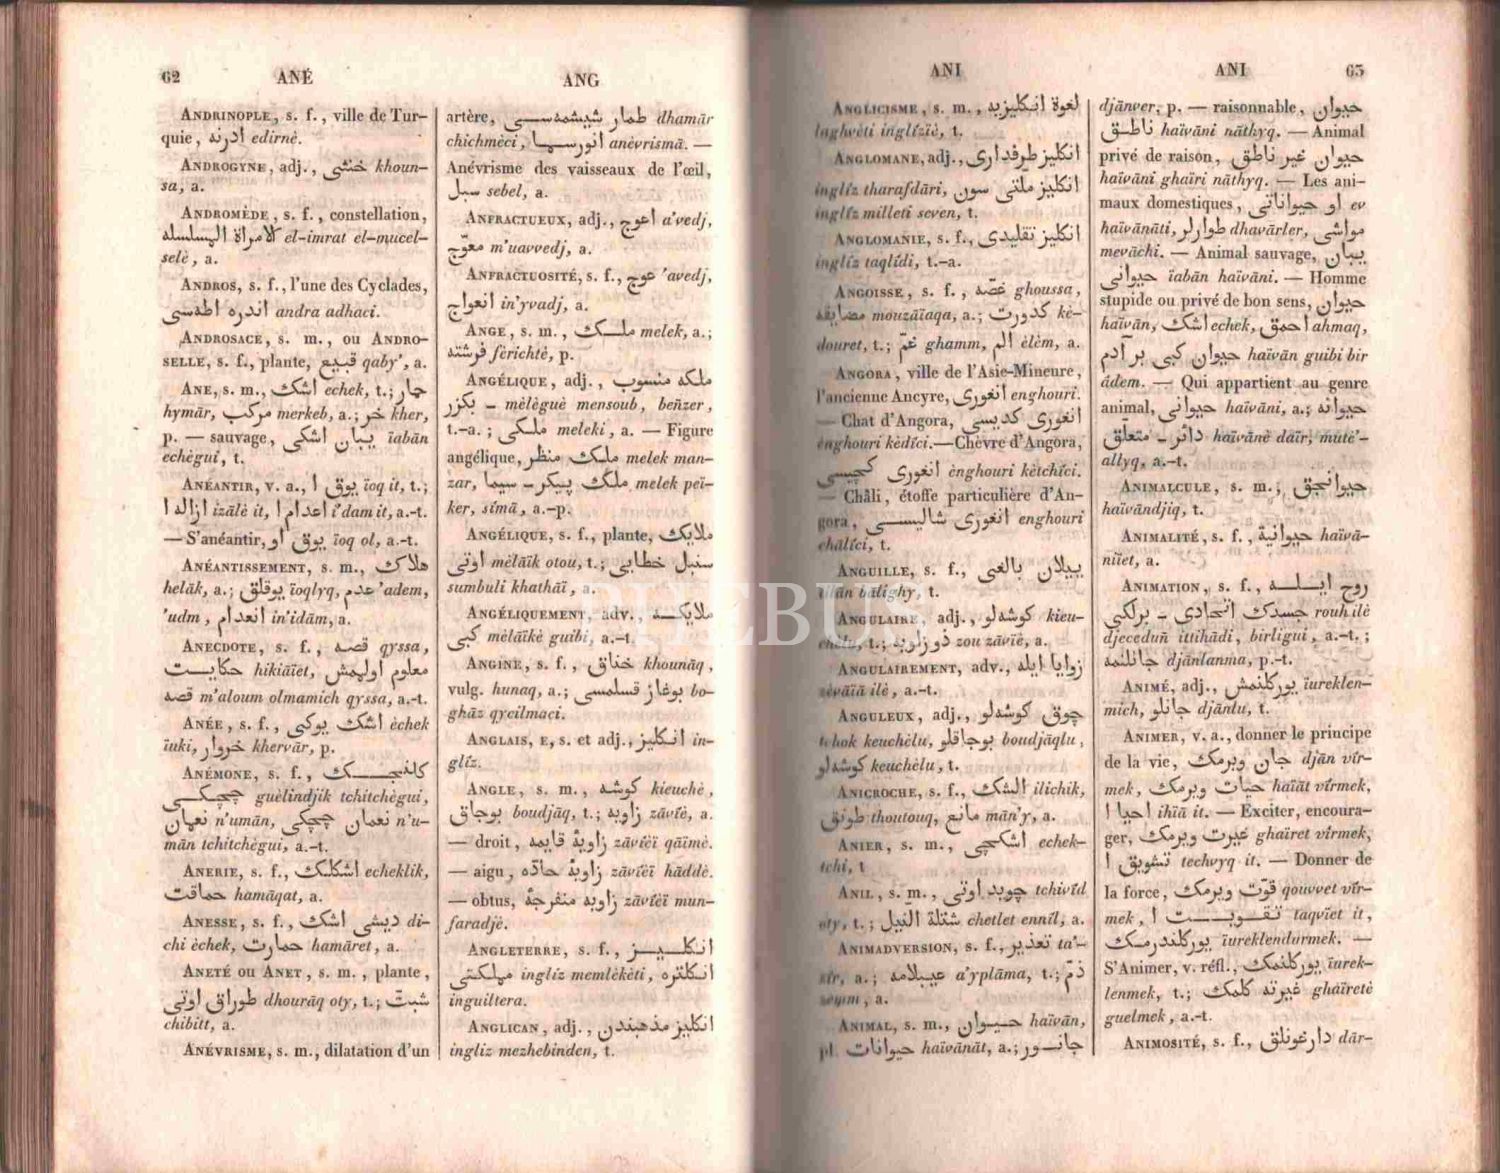 62 ANÉ
ANDRINOPLE, s. f., ville de Tur-
quie, ادرنه edirnè.
ANDROGYNE, adj., خنثى khoun-
sa, a.
ANDROMÈDE, s. f., constellation,
الامراة المسلسله el-imrat el-mucel-
selè, a.
ANDROS, s. f., l'une des Cyclades,
اندره اطه‌سى andra adhaci.
ANDROSACE, s. m., ou ANDRO-
SELLE, s. f., plante, قبيع qaby', a.
ANE, s. m., اشك echek, t.; حمار
hymār, مركب merkeb, a.; خر kher,
p. — sauvage, يبان اشكى ïabān
echègui, t.
ANÉANTIR, v. a., يوق ا ïoq it, t.;
ازاله ا izālè it, اعدام ا i'dam it, a.-t.
— S'anéantir, يوق او ïoq ol, a.-t.
ANÉANTISSEMENT, s. m., هلاك
helāk, a.; يوقلق ïoqlyq, عدم 'adem,
'udm, انعدام in'idām, a.
ANECDOTE, s. f., قصه qyssa,
حكايت hikiāïet, معلوم اولمامش
قصه m'aloum olmamich qyssa, a.-t.
ANÉE, s. f., اشك يوكى èchek
ïuki, خروار khervār, p.
ANÉMONE, s. f., كلنجك
چچكى guèlindjik tchitchègui,
نعمان n'umān, نعمان چچكى n'u-
mān tchitchègui, a.-t.
ANERIE, s. f., اشكلك echeklik,
حماقت hamāqat, a.
ANESSE, s. f., ديشى اشك di-
chi èchek, حمارت hamāret, a.
ANETÉ ou ANET, s. m., plante,
طوراق اوتى dhourāq oty, t.; شبتّ
chibitt, a.
ANÉVRISME, s. m., dilatation d'un
ANG
artère, طمار شيشمه‌سى dhamār
chichmèci, انورسما anèvrismā. —
Anévrisme des vaisseaux de l'œil,
سبل sebel, a.
ANFRACTUEUX, adj., اعوج a'vedj,
معوّج m'uavvedj, a.
ANFRACTUOSITÉ, s. f., عوج 'avedj,
انعواج in'yvadj, a.
ANGE, s. m., ملك melek, a.;
فرشته fèrichtè, p.
ANGÉLIQUE, adj., ملكه منسوب
بكزر ـ mèlèguè mensoub, beñzer,
t.-a.; ملكى meleki, a. — Figure
angélique, ملك منظر melek man-
zar, ملك پيكر ـ سيما melek peï-
ker, sīmā, a.-p.
ANGÉLIQUE, s. f., plante, ملايك
اوتى mèlāïk otou, t.; سنبل خطايى
sumbuli khathāï, a.
ANGÉLIQUEMENT, adv., ملايكه
كبى mèlāïkè guibi, a.-t.
ANGINE, s. f., خناق khounāq,
vulg. hunaq, a.; بوغاز قسلمسى bo-
ghāz qycilmaci.
ANGLAIS, E, s. et adj., انكليز in-
glīz.
ANGLE, s. m., كوشه kieuchè,
بوجاق boudjāq, t.; زاويه zāvīè, a.
— droit, زاويۀ قايمه zāvīèï qāïmè.
— aigu, زاويۀ حادّه zāvīèï hāddè.
— obtus, زاويۀ منفرجه zāvīèï mun-
faradjè.
ANGLETERRE, s. f., انكليز
مملكتى inglīz memlèkèti, انكلتره
inguiltera.
ANGLICAN, adj., انكليز مذهبندن
ingliz mezhebinden, t.
ANI
ANGLICISME, s. m., لغوة انكليزيه
laghvèti inglīzïè, t.
ANGLOMANE, adj., انكليز طرفدارى
inglīz tharafdāri, انكليز ملّتى سون
inglīz milleti seven, t.
ANGLOMANIE, s. f., انكليز تقليدى
inglīz taqlīdi, t.-a.
ANGOISSE, s. f., غصّه ghoussa,
مضايقه mouzāïaqa, a.; كدورت kè-
douret, t.; غمّ ghamm, الم èlèm, a.
ANGORA, ville de l'Asie-Mineure,
l'ancienne Ancyre, انغورى enghouri.
— Chat d'Angora, انغورى كديسى
enghouri kèdīci. — Chèvre d'Angora,
انغورى كچيسى ènghouri kètchīci.
— Châli, étoffe particulière d'An-
gora, انغورى شاليسى enghouri
chālīci, t.
ANGUILLE, s. f., ييلان بالغى
ïilān bālighy, t.
ANGULAIRE, adj., كوشه‌لو kieu-
chèlu, t.; ذو زاويه zou zāvīè, a.
ANGULAIREMENT, adv., زوايا ايله
zèvāïā ilè, a.-t.
ANGULEUX, adj., چوق كوشه‌لو
tchok keuchèlu, بوجاقلو boudjāqlu,
كوشه‌لو keuchèlu, t.
ANICROCHE, s. f., الشك ilichik,
طوتق thoutouq, مانع mān'y, a.
ANIER, s. m., اشكچى echek-
tchi, t
ANIL, s. m., چويد اوتى tchivīd
oty, t.; شتلة النّيل chetlet ennīl, a.
ANIMADVERSION, s. f., تعذير ta'-
zīr, a.; عيبلامه a'yplāma, t.; ذمّ
zemm, a.
ANIMAL, s. m., حيوان haïvān,
pl. حيوانات haïvānāt, a.; جانور
ANI 63
djānver, p. — raisonnable, حيوان
ناطق haïvāni nāthyq. — Animal
privé de raison, حيوان غير ناطق
haïvāni ghaïri nāthyq. — Les ani-
maux domestiques, او حيواناتى ev
haïvānāti, طوارلر dhavārler, مواشى
mevāchi. — Animal sauvage, يبان
حيوانى ïabān haïvāni. — Homme
stupide ou privé de bon sens, حيوان
haïvān, اشك echek, احمق ahmaq,
حيوان كبى بر آدم haïvān guibi bir
ādem. — Qui appartient au genre
animal, حيوانى haïvāni, a.; حيوانه
دائر ـ متعلق haïvānè dāïr, mutè'-
allyq, a.-t.
ANIMALCULE, s. m.; حيوانجق
haïvāndjiq, t.
ANIMALITÉ, s. f., حيوانية haïvā-
nīïet, a.
ANIMATION, s. f., روح ايله
جسدك اتحادى ـ برلكى rouh ilè
djeceduñ ittihādi, birligui, a.-t.;
جانلنمه djānlanma, p.-t.
ANIMÉ, adj., يوركلنمش ïureklen-
mich, جانلو djānlu, t.
ANIMER, v. a., donner le principe
de la vie, جان ويرمك djān vīr-
mek, حيات ويرمك haïāt vīrmek,
احيا ا ihīā it. — Exciter, encoura-
ger, غيرت ويرمك ghaïret vīrmek,
تشويق ا techvyq it. — Donner de
la force, قوّت ويرمك qouvvet vīr-
mek, تقويت ا taqvīet it,
يوركلندرمك ïureklendurmek. —
S'Animer, v. réfl., يوركلنمك ïurek-
lenmek, t.; غيرته كلمك ghaïretè
guelmek, a.-t.
ANIMOSITÉ, s. f., دارغونلق dār-